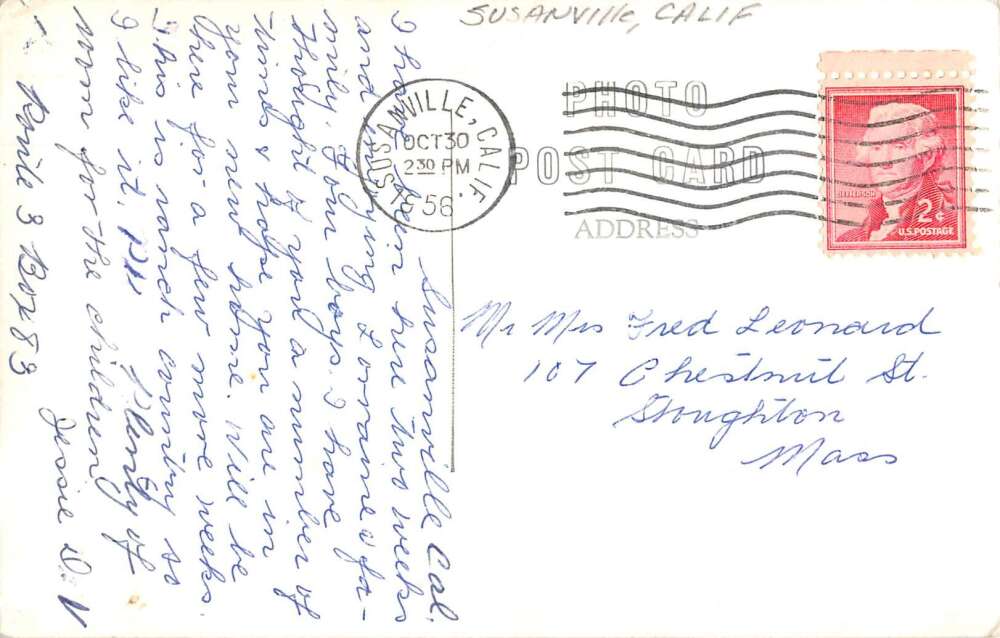 SUSANVILLE, CALIF
PHOTO
POST CARD
ADDRESS
SUSANVILLE, CALIF.
OCT 30
2 30 PM
1956
JEFFERSON
2¢
U.S. POSTAGE
Mr Mrs Fred Leonard
107 Chestnut St.
Stoughton
Mass
Susanville Cal.
I have been here two weeks
and enjoying Lorraine & fa-
mily. Four boys. I have
thought of you a number of
times & hope you are in
your new home. Will be
here for a few more weeks.
This is ranch country so
I like it. Plenty of
room for the children
Jessie D. V
Route 3 Box 83